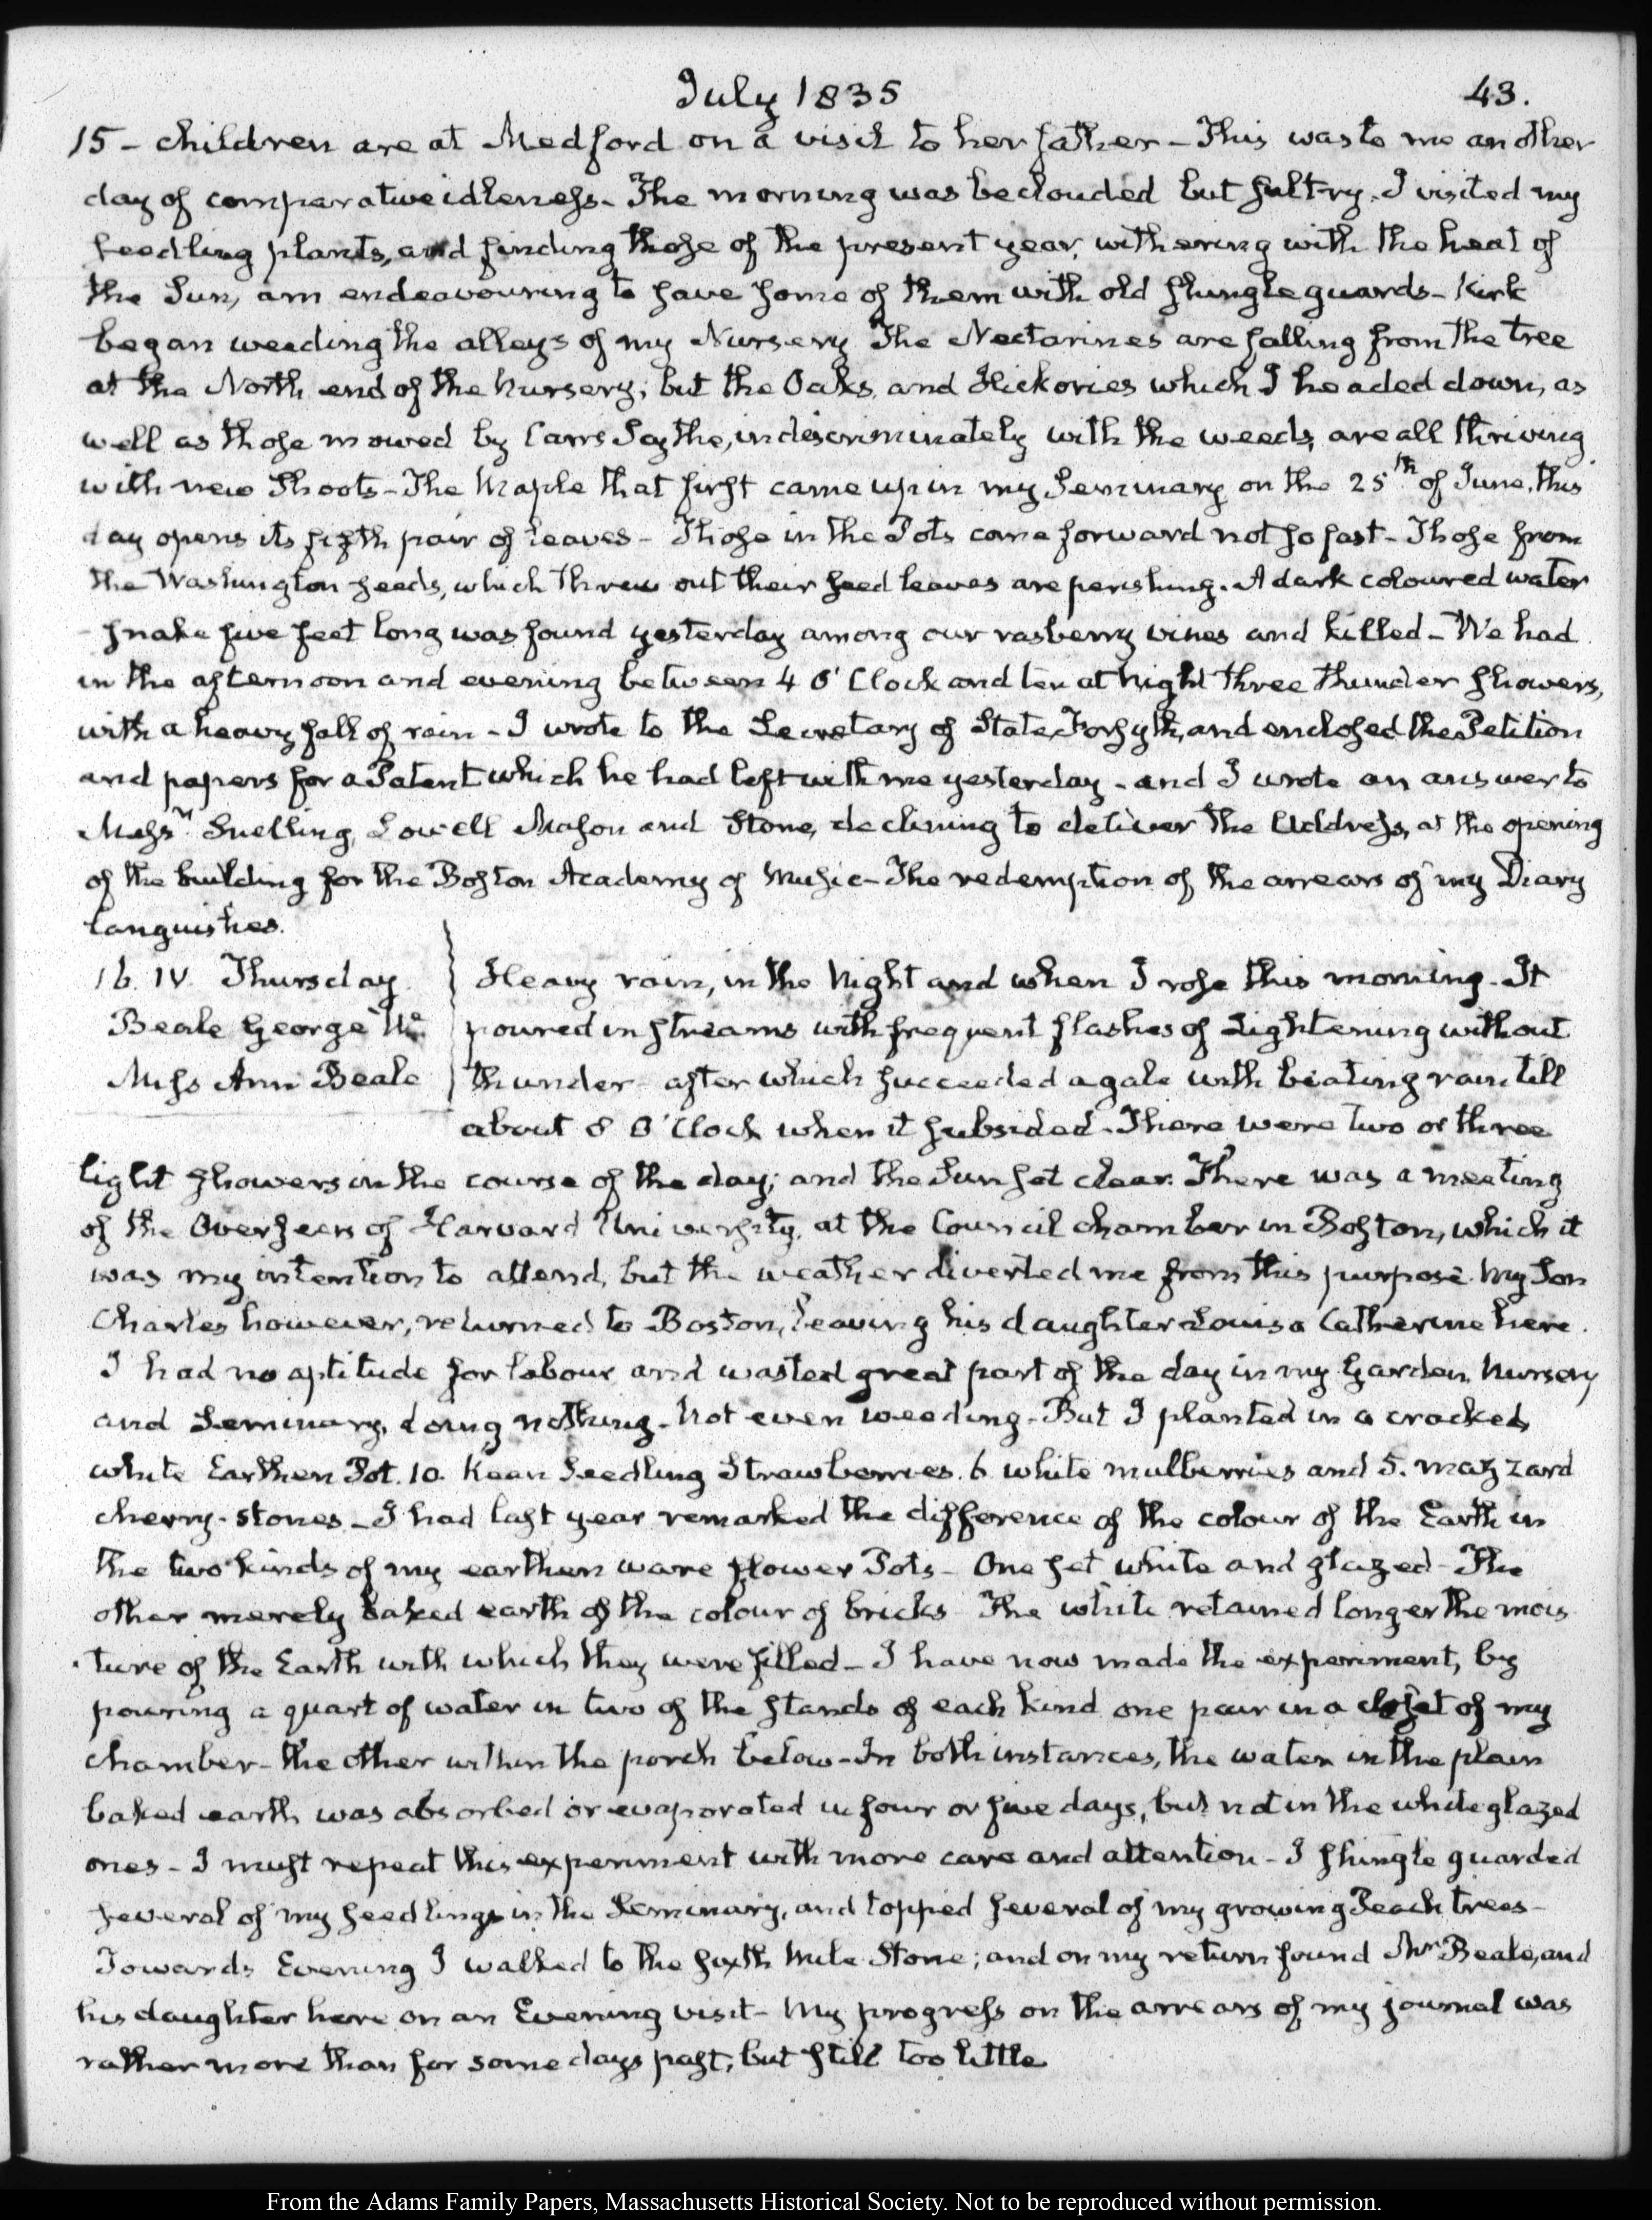 July 1835
43.
15 - children are at Medford on a visit to her father - This was to me another
day of comparative idleness - The morning was beclouded but sultry. I visited my
seedling plants, and finding those of the present year, withering with the heat of
the Sun, am endeavouring to save some of them with old shingle guards - Kirk
began weeding the alleys of my Nursery The Nectarines are falling from the tree
at the North end of the Nursery; but the Oaks, and Hickories which I headed down, as
well as those mowed by Carrs Scythe, indiscriminately with the weeds, are all thriving
with new Shoots - The Maple that first came up in my Seminary on the 25th of June, this
day opens its fifth pair of leaves - Those in the Pots come forward not so fast - Those from
the Washington seeds, which threw out their seed leaves are perishing. A dark coloured water
snake five feet long was found yesterday among our rasberry vines and killed - We had
in the afternoon and evening between 4 O'Clock and ten at night three thunder showers,
with a heavy fall of rain - I wrote to the Secretary of State, Forsyth, and enclosed the Petition
and papers for a Patent which he had left with me yesterday - and I wrote an answer to
Messrs Snelling, Lowell Mason and Stone, declining to deliver the Address, at the opening
of the building for the Boston Academy of Music - The redemption of the arrears of my Diary
languishes.
16. IV. Thursday
Beale George Wm
Miss Ann Beale
Heavy rain, in the Night and when I rose this morning. It
poured in streams with frequent flashes of Lightening without
thunder - after which succeeded a gale with beating rain till
about 8 O'Clock when it subsided. There were two or three
light showers in the course of the day; and the Sun set clear. There was a meeting
of the Overseers of Harvard University, at the Council chamber in Boston, which it
was my intention to attend, but the weather diverted me from this purpose. My Son
Charles however, returned to Boston, leaving his daughter Louisa Catherine here.
I had no aptitude for labour and wasted great part of the day in my Garden, Nursery
and Seminary, doing nothing - Not even weeding - But I planted in a cracked
white Earthen Pot. 10. Kean Seedling Strawberries. 6 white mulberries and 5. mazzard
cherry-stones - I had last year remarked the difference of the colour of the Earth in
the two kinds of my earthen ware flower Pots - One set white and glazed - The
other merely baked earth of the colour of bricks - The white retained longer the mois
ture of the Earth with which they were filled - I have now made the experiment, by
pouring a quart of water in two of the stands of each kind one pair in a closet of my
chamber - the other within the porch below - In both instances, the water in the plain
baked earth was absorbed or evaporated in four or five days, but not in the white glazed
ones - I must repeat this experiment with more care and attention - I shingle guarded
several of my seedlings in the Seminary, and topped several of my growing Peach trees -
Towards Evening I walked to the sixth Mile Stone; and on my return found Mr Beale, and
his daughter here on an Evening visit - My progress on the arrears of my journal was
rather more than for some days past, but still too little
From the Adams Family Papers, Massachusetts Historical Society. Not to be reproduced without permission.